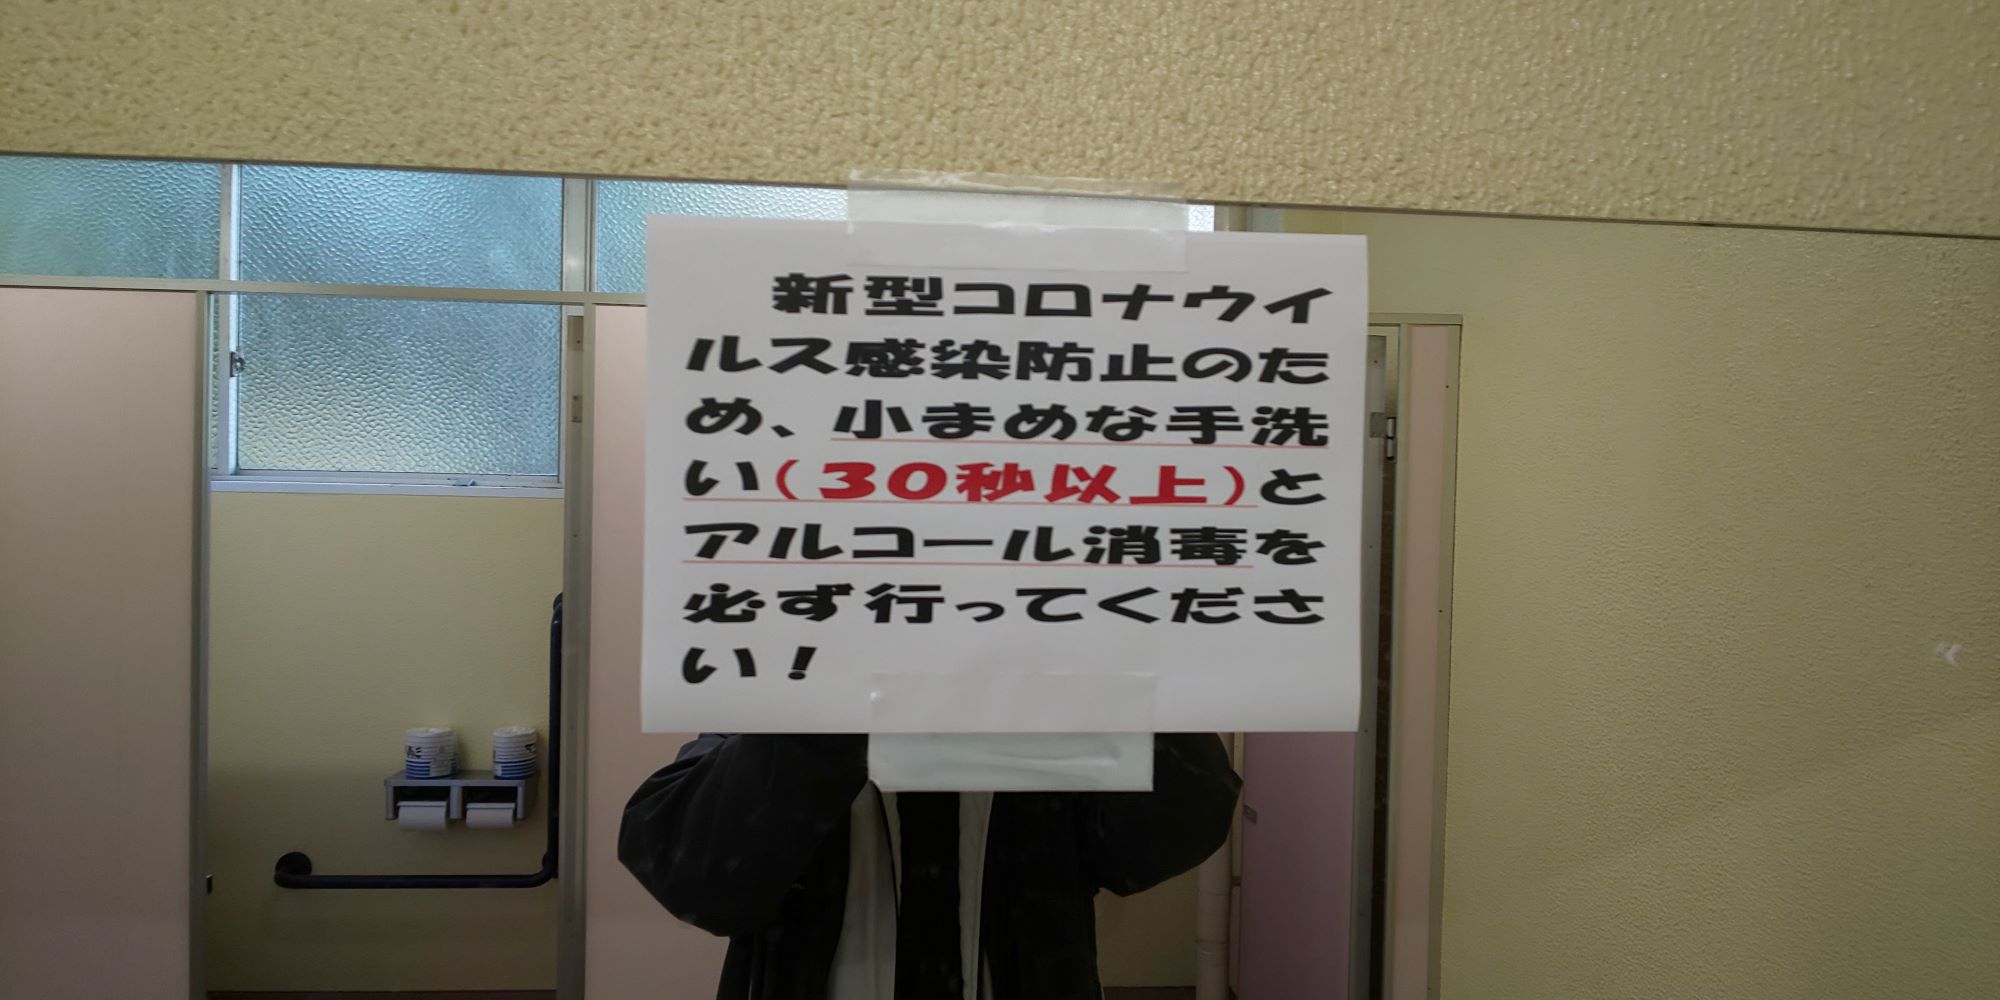 新型コロナウイ
ルス感染防止のた
め、小まめな手洗
い(30秒以上)と
アルコール消毒を
必ず行ってくださ
い!